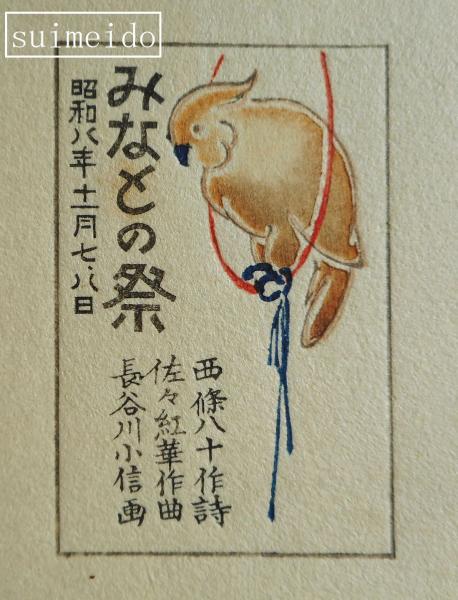 suimeido
みなとの祭
昭和八年十一月七、八日
西條八十作詩
佐々紅華作曲
長谷川小信画